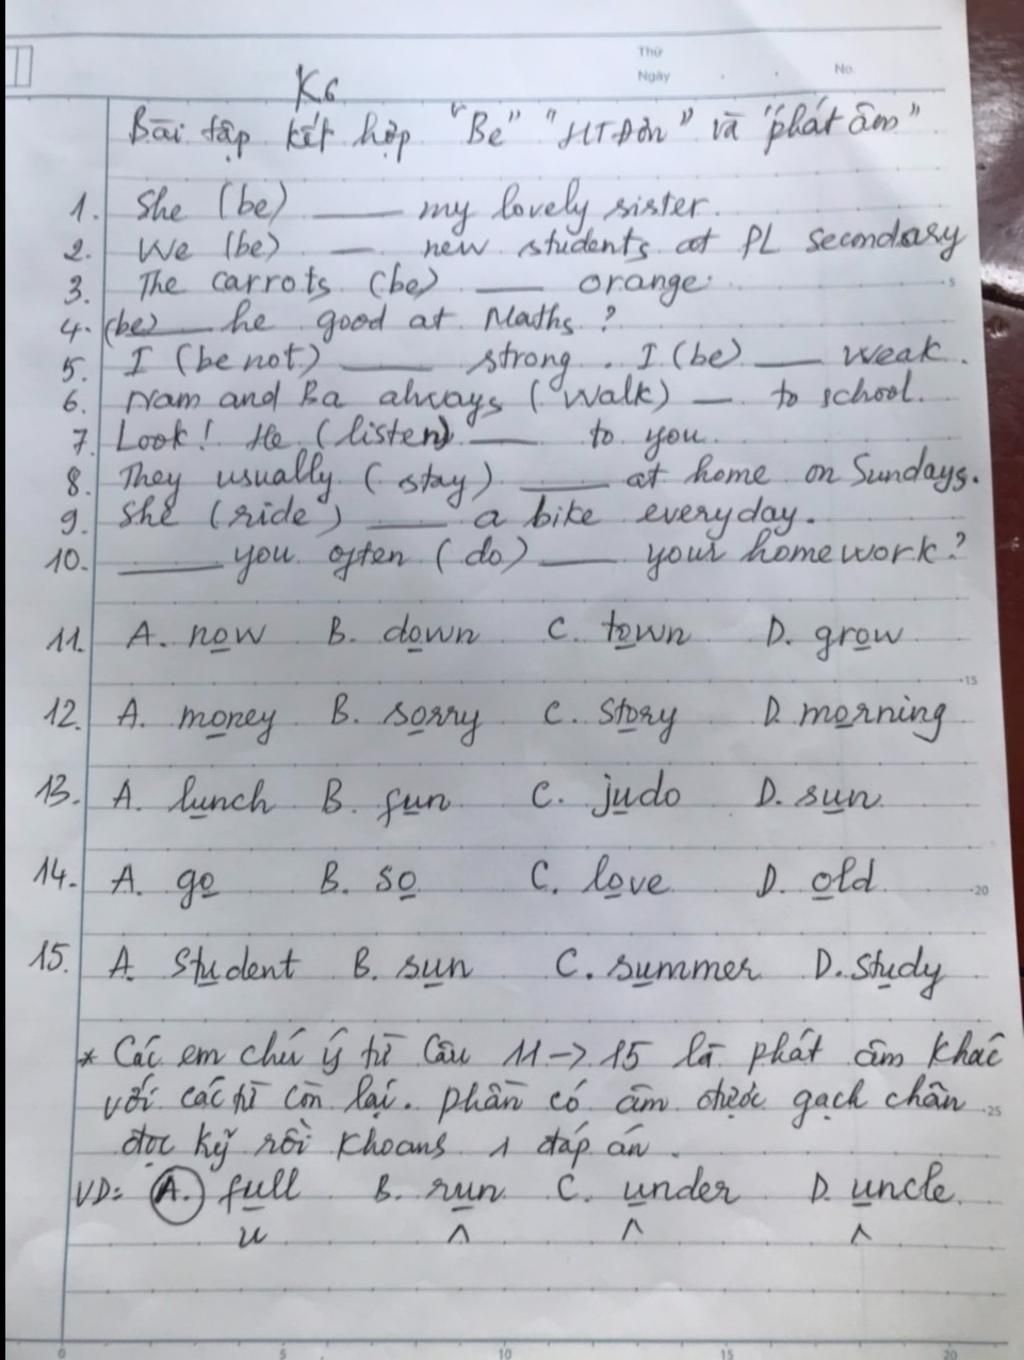 Thứ
Ngày
No.
K6
Bài tập kết hợp "Be" "HTĐơn" và "phát âm"
1. She (be) ___ my lovely sister.
2. We (be) ___ new students at PL secondary
3. The carrots (be) ___ orange.
4. (be) ___ he good at Maths?
5. I (be not) ___ strong. I (be) ___ weak.
6. Nam and Ba always (walk) ___ to school.
7. Look! He (listen) ___ to you.
8. They usually (stay) ___ at home on Sundays.
9. She (ride) ___ a bike everyday.
10. ___ you often (do) ___ your homework?
11. A. now B. down C. town D. grow
12. A. money B. sorry C. story D. morning
13. A. lunch B. fun C. judo D. sun
14. A. go B. so C. love D. old
15. A. student B. sun C. summer D. study
* Các em chú ý từ Câu 11 -> 15 là phát âm khác
với các từ còn lại. phần có âm được gạch chân
đọc kỹ rồi khoanh 1 đáp án.
VD: A. full B. run C. under D. uncle.
u ʌ ʌ ʌ
5
15
20
25
0 5 10 15 20